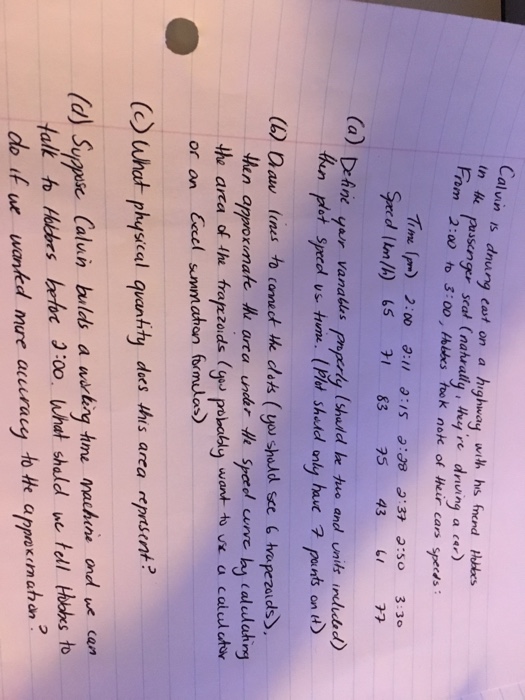 Calvin is driving east on a highway with his friend Hobbes
in the passenger seat (naturally, they're driving a car)
From 2:00 to 3:00, Hobbes took note of their cars speeds:
Time (pm) 2:00 2:11 2:15 2:28 2:37 2:50 3:30
Speed (km/h) 65 71 83 75 43 61 77
(a) Define your variables properly (should be two and units included)
then plot speed vs time. (Plot should only have 7 points on it)
(b) Draw lines to connect the dots (you should see 6 trapezoids),
then approximate the area under the speed curve by calculating
the area of the trapezoids (you probably want to use a calculator
or an Excel summation formulas)
(c) What physical quantity does this area represent?
(d) Suppose Calvin builds a working time machine and we can
talk to Hobbes before 2:00. What should we tell Hobbes to
do if we wanted more accuracy to the approximation?